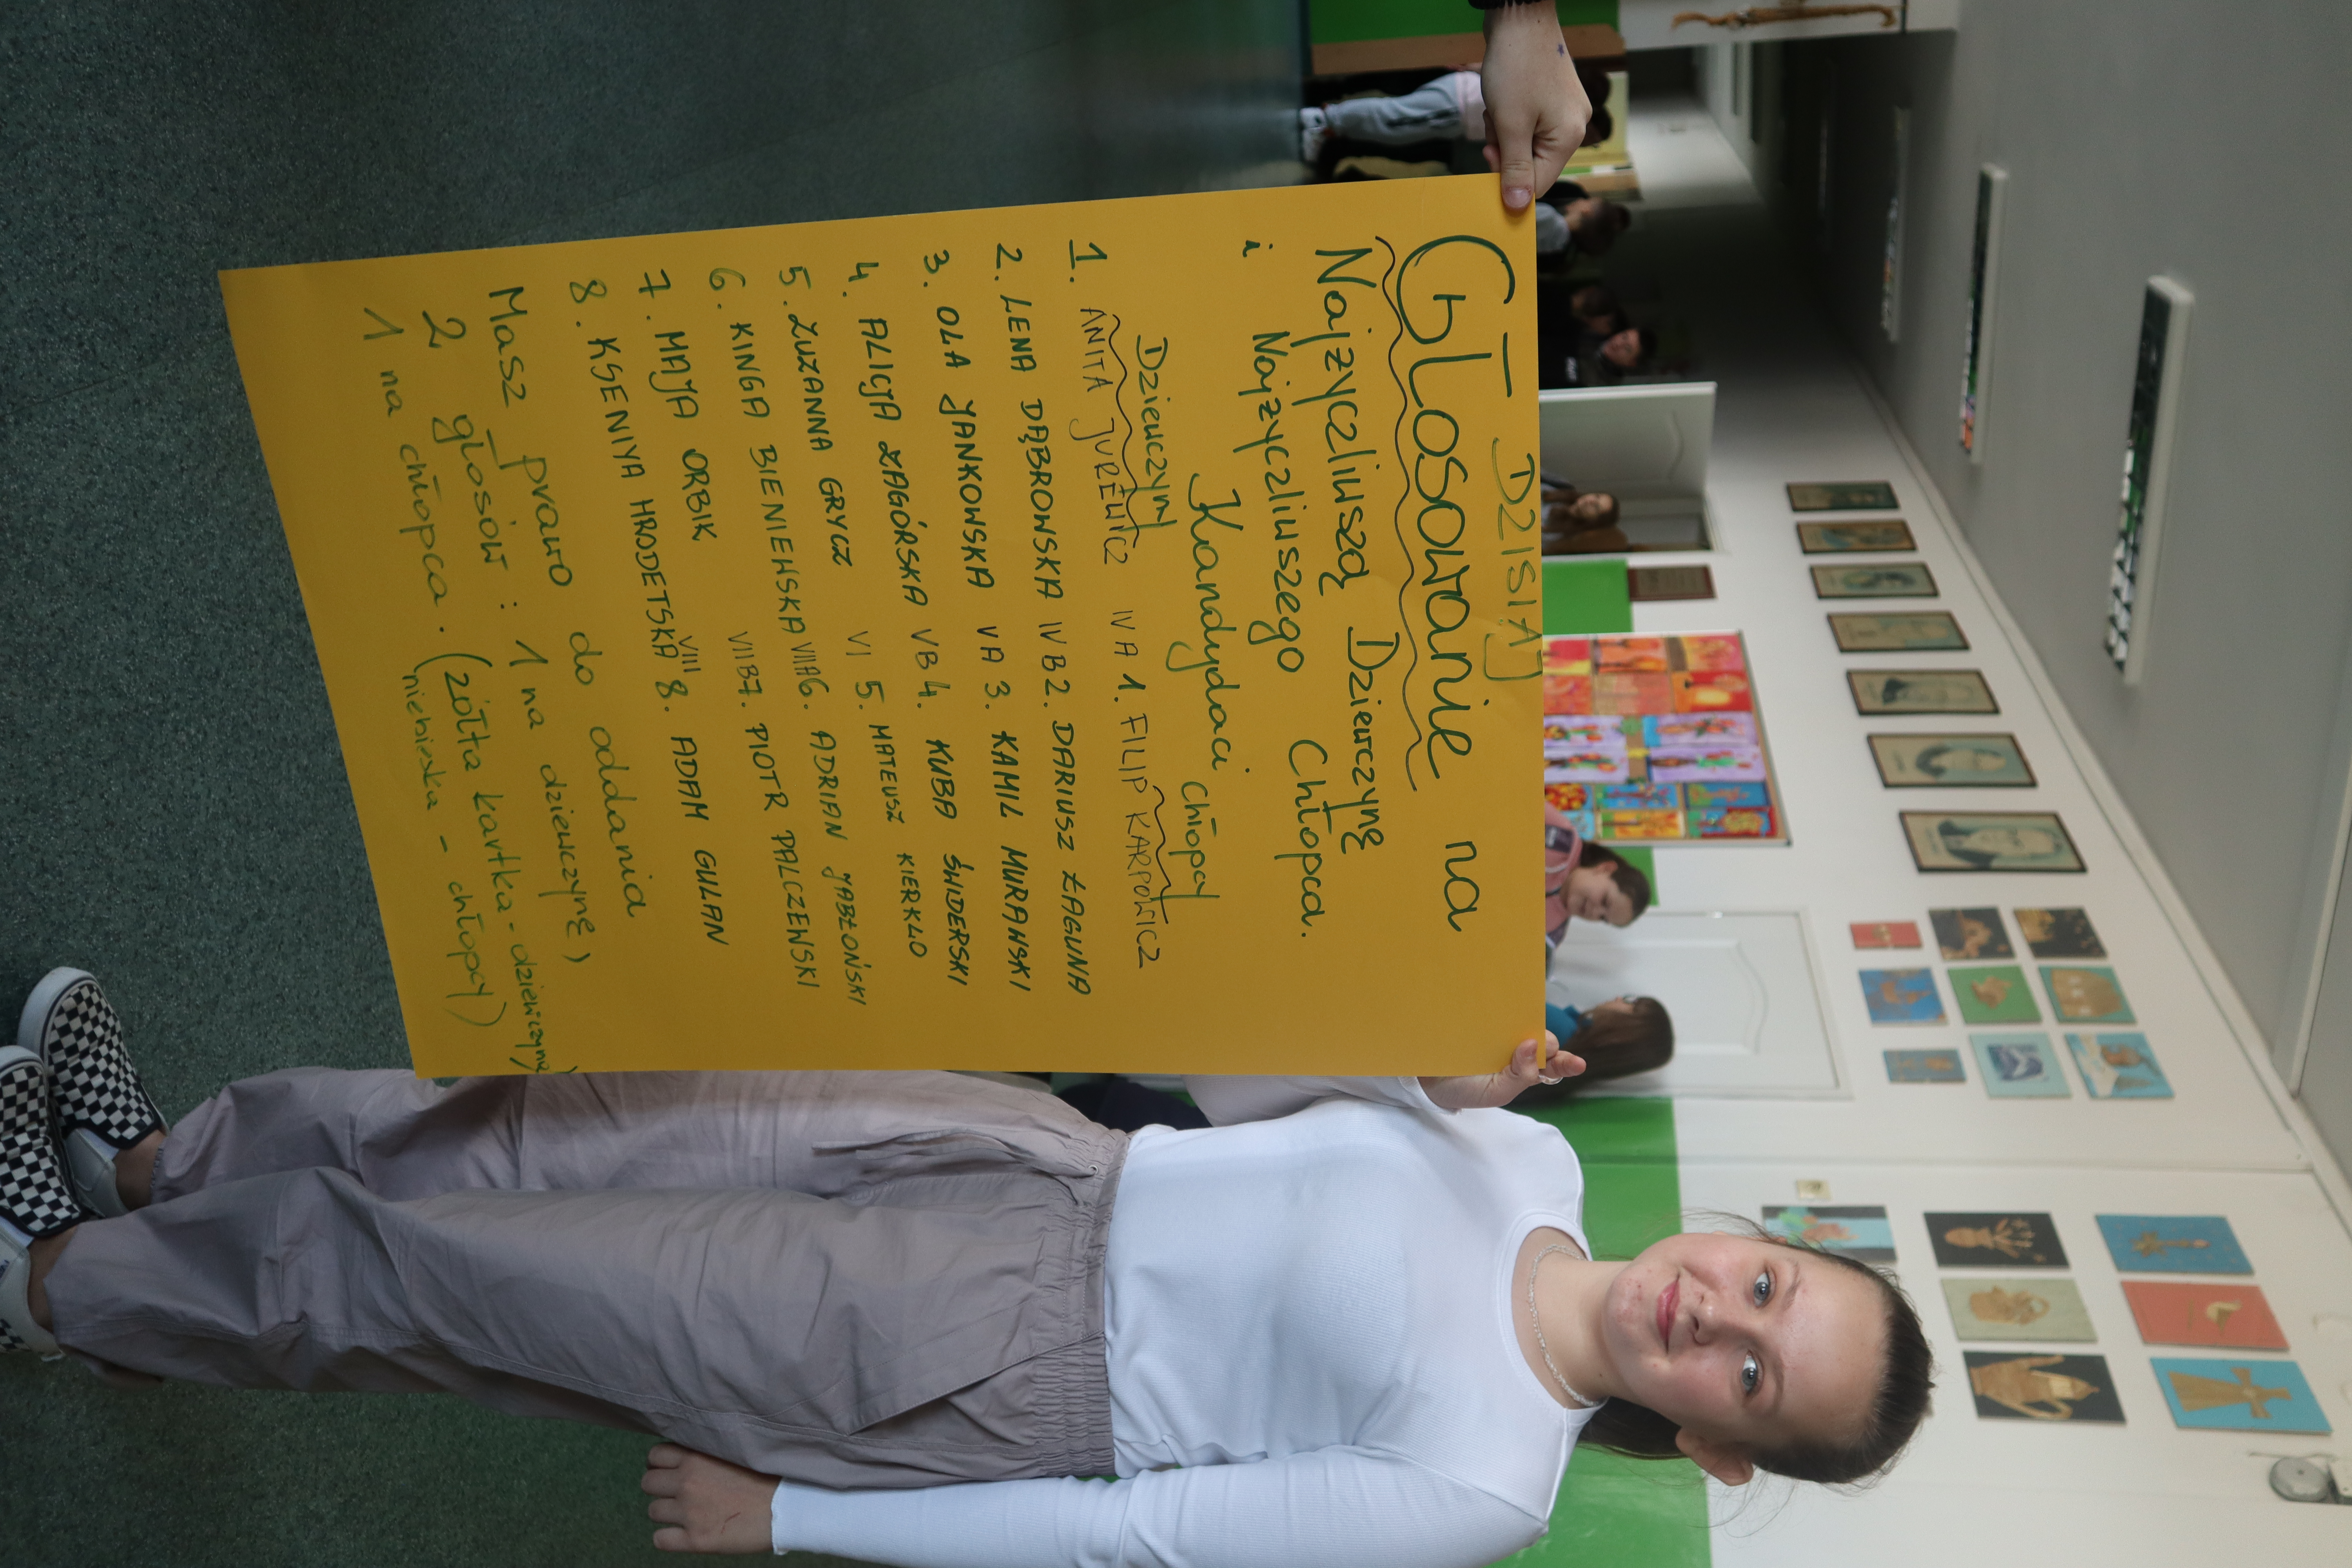 DZISIAJ
Głosowanie na
Najżyczliwszą Dziewczynę
i Najżyczliwszego Chłopca.
Kandydaci
Dziewczyny chłopcy
1. ANITA JUREWICZ IV A 1. FILIP KARPOWICZ
2. LENA DĄBROWSKA IV B 2. DARIUSZ ŁAGUNA
3. OLA JANKOWSKA V A 3. KAMIL MURAWSKI
4. ALICJA ZAGÓRSKA V B 4. KUBA ŚWIDERSKI
5. ZUZANNA GRYCZ VI 5. MATEUSZ KIERKLO
6. KINGA BIENIEWSKA VII A 6. ADRIAN JABŁOŃSKI
7. MAJA ORBIK VII B 7. PIOTR PALCZEWSKI
8. KSENIYA HRODETSKA VIII 8. ADAM GULAN
Masz prawo do oddania
2 głosów : 1 na dziewczynę,
1 na chłopca. (żółta kartka - dziewczyny)
niebieska - chłopcy)